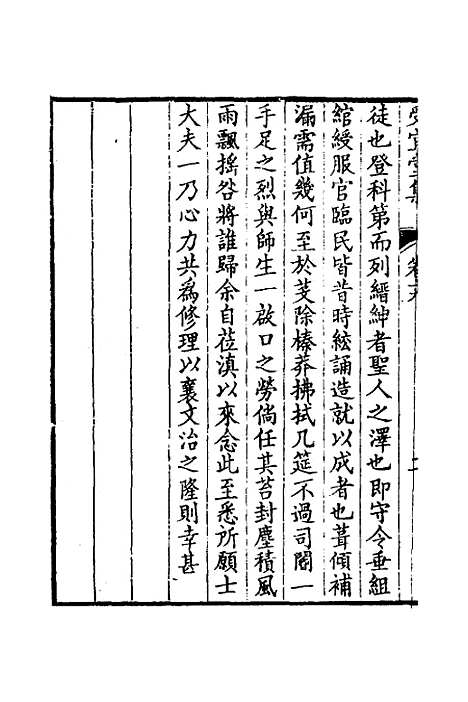 受宜堂集
卷二
徒也登科第而列縉紳者聖人之澤也即守令垂組
綰綬服官臨民皆昔時絃誦造就以成者也葺傾補
漏需值幾何至於芟除榛莽拂拭几筵不過司閽一
手足之烈與師生一啟口之勞倘任其苔封塵積風
雨飄搖咎將誰歸余自莅滇以來念此至悉所願士
大夫一乃心力共為修理以襄文治之隆則幸甚